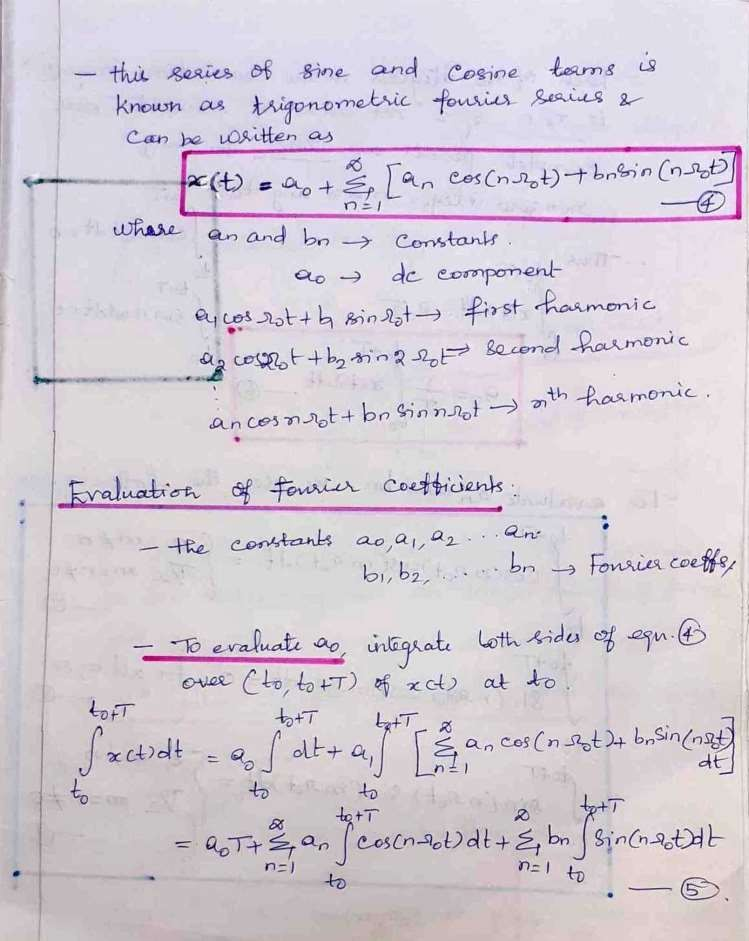 - this series of sine and cosine terms is
known as trigonometric fourier series &
can be written as
x(t) = a₀ + ∞Σn=1 [an cos(nΩ₀t) + bn sin(nΩ₀t)]
— ④
where an and bn → constants.
a₀ → dc component
a₁ cos Ω₀t + b₁ sin Ω₀t → first harmonic
a₂ cos2Ω₀t + b₂ sin 2Ω₀t → second harmonic
an cos nΩ₀t + bn sin nΩ₀t → nth harmonic.
Evaluation of Fourier Coefficients.
- the constants a₀, a₁, a₂ ... an
b₁, b₂, ...... bn → Fourier coeffs,
- To evaluate a₀, integrate both sides of eqn. ④
over (t₀, t₀+T) of x(t) at t₀.
∫t₀^t₀+T x(t) dt = a₀ ∫t₀^t₀+T dt + a₁ ∫t₀^t₀+T [∞Σn=1 an cos(nΩ₀t) + bn sin(nΩ₀t) dt]
= a₀T + ∞Σn=1 an ∫t₀^t₀+T cos(nΩ₀t) dt + ∞Σn=1 bn ∫t₀^t₀+T sin(nΩ₀t) dt
— ⑤.